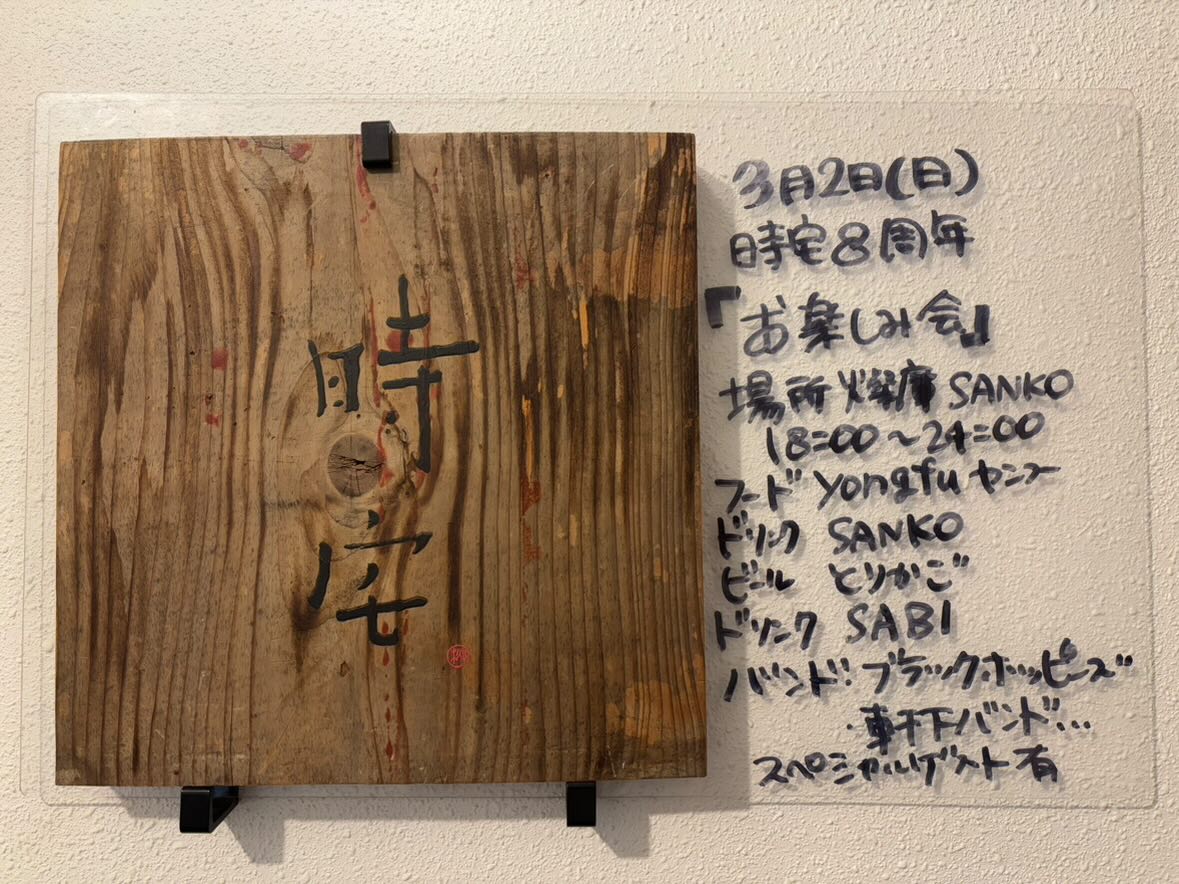 時宅
3月2日(日)
時宅8周年
『お楽しみ会』
場所 燦庫 SANKO
18=00~24=00
フード Yongfu ヤンフー
ドリンク SANKO
ビール とりかご
ドリンク SABI
バンド: ブラックホッピーズ
・軒下バンド...
スペシャルゲスト有